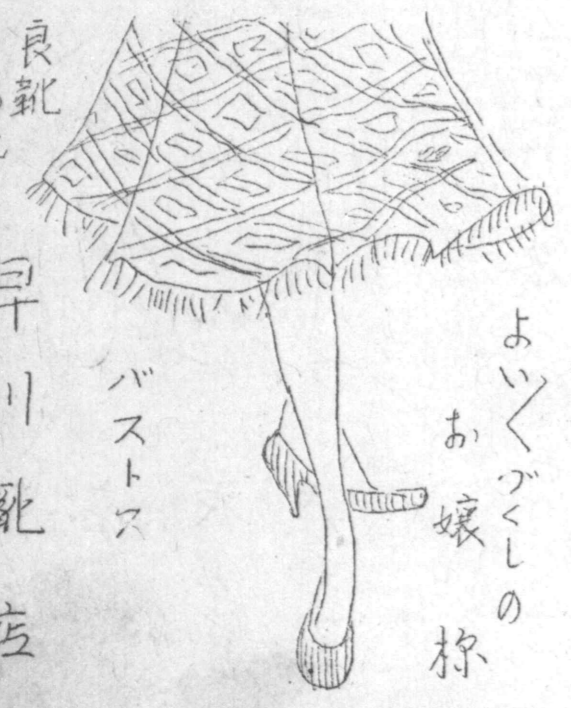 よい〱づくしの
お嬢様
バストス
良靴
早川靴店